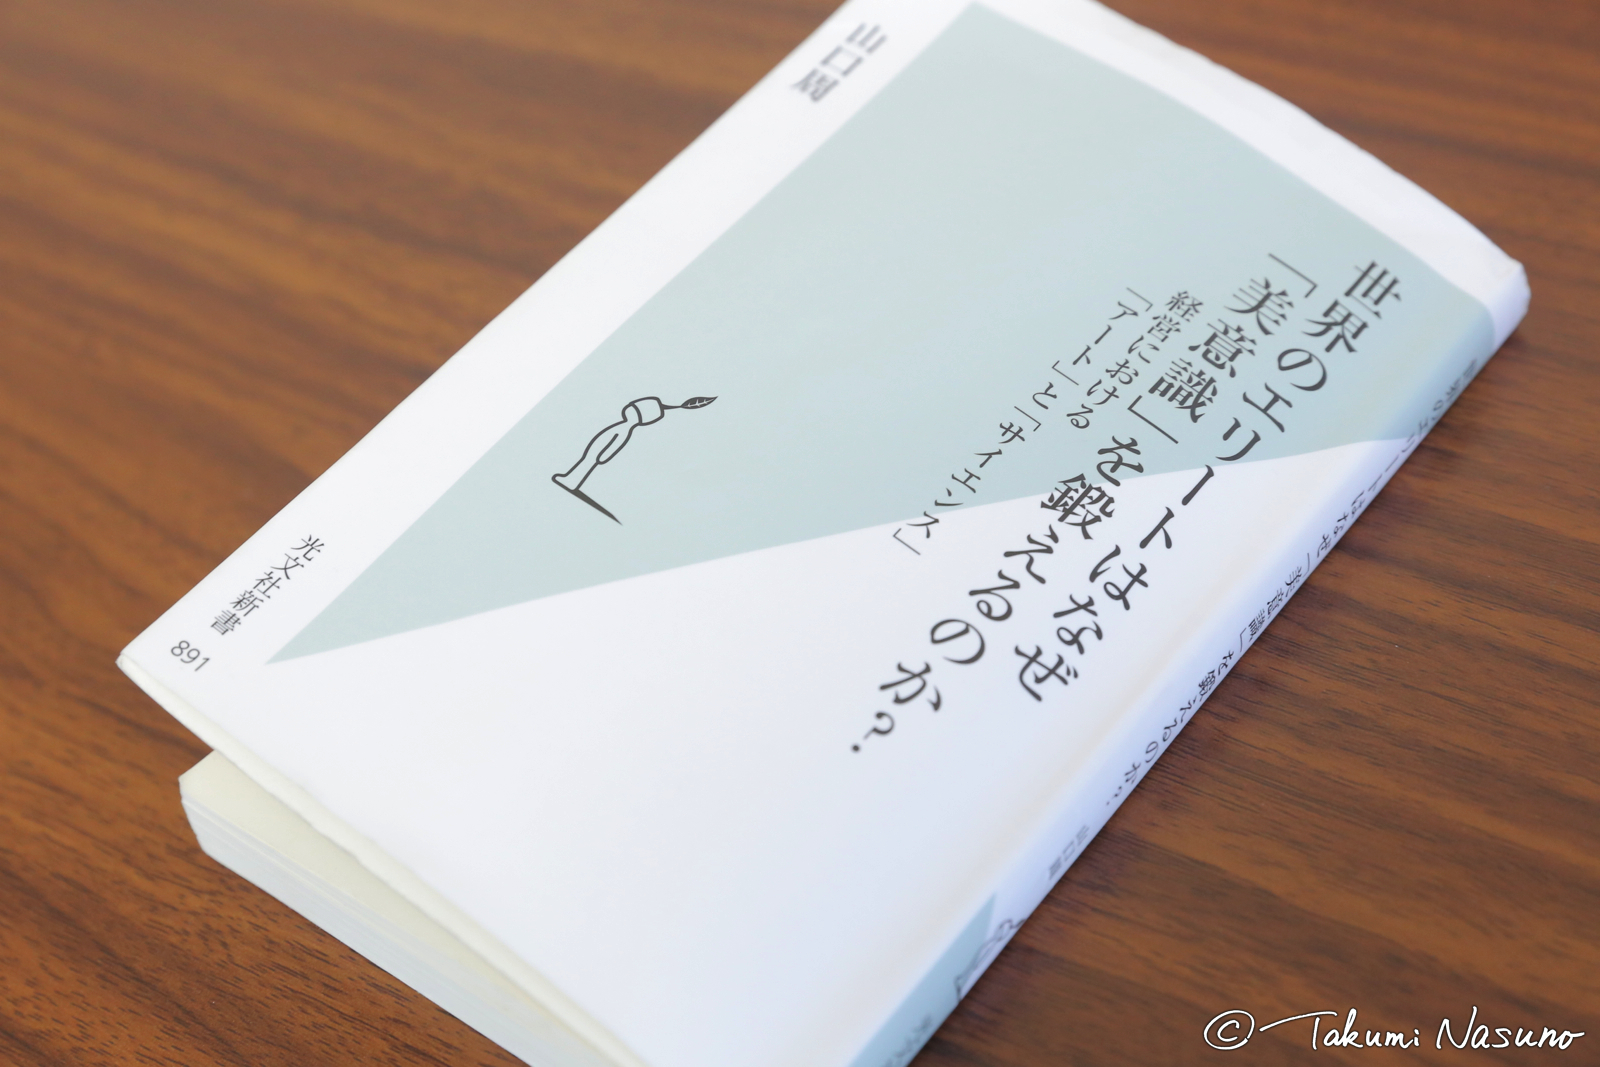 世界のエリートはなぜ
「美意識」を鍛えるのか?
経営における
「アート」と「サイエンス」
山口周
光文社新書
891
世界のエリートはなぜ「美意識」を鍛えるのか? 山口周
© Takumi Nasuno